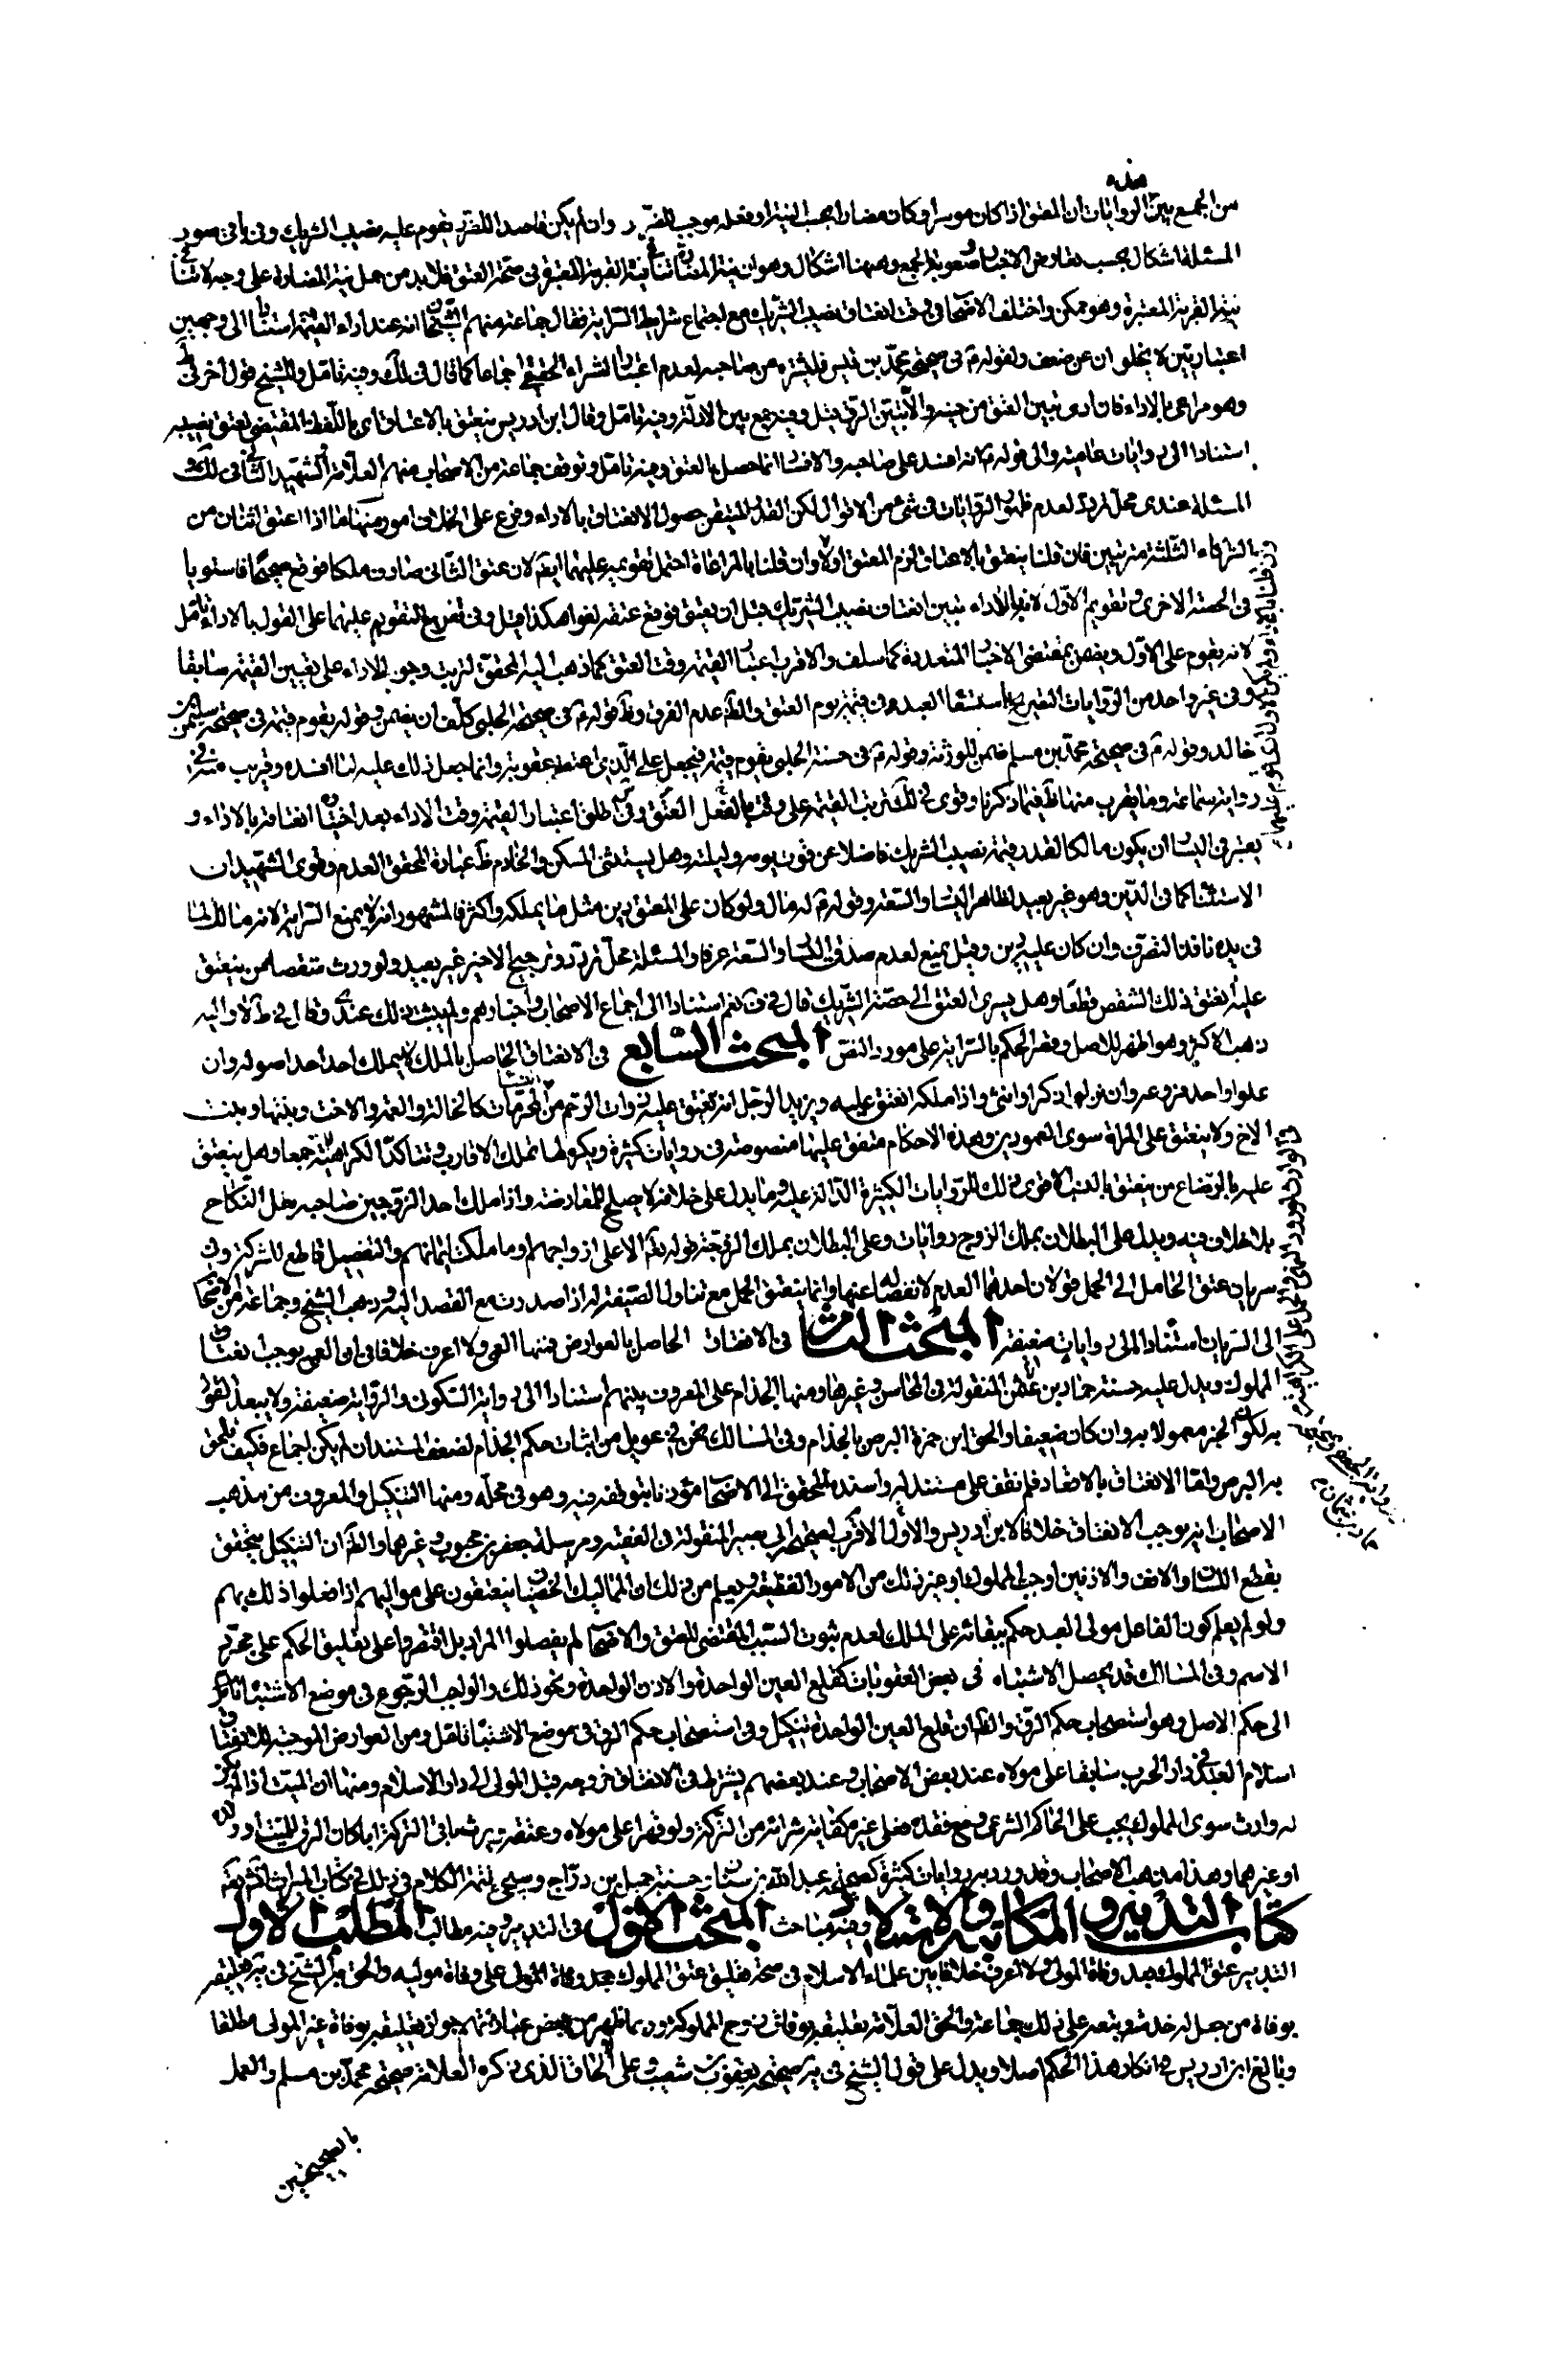 من الجمع بين الروايات ان المعتق اذا كان موسرا وكان مضارا بحسب النية او فعله موجب للضرر وان لم يكن قاصدا للضرر يقوم عليه نصيب الشريك وفي باقي صور
المسئلة اشكال بحسب تعارض الاخبار وصعوبة الجمع وههنا اشكال وهو ان نية المضارة تنافي نية القربة المعتبرة في صحة العتق فلابد من حمل نية المضارة على وجه لا تنافي
نية القربة المعتبرة وهو ممكن واختلف الاصحاب في وقت انعتاق نصيب الشريك مع اجتماع شرايط السراية فقال جماعة منهم الشيخان انه عند اداء القيمة استنادا الى وجهين
اعتباريين لا يخلوان عن ضعف ولقوله ع في صحيحة محمد بن قيس فليشتره من صاحبه لعدم اعتبار الشراء الحقيقي اجماعا كما قال في لك وفيه تامل وللشيخ قول اخر في ط
وهو مراعى بالاداء فان ادى تبين العتق من حينه والا تبين الرق قيل وفيه جمع بين الادلة وفيه تامل وقال ابن ادريس ينعتق بالاعتاق اي باللفظ المقتضي لعتق نصيبه
استنادا الى روايات عامية والى قوله ع انه افسد على صاحبه والافساد انما حصل بالعتق وفيه تامل وتوقف جماعة من الاصحاب منهم العلامة والشهيد الثاني في لك و
المسئلة عندي محل تردد لعدم ظهور الروايات في شئ من الاقوال لكن القدر المتيقن حصول الانعتاق بالاداء وفرع على الخلاف امور منها ما اذا اعتق اثنان من
الشركاء الثلثة مترتبين فان قلنا ينعتق بالاعتاق لزم المعتق اولا وان قلنا بالمراعاة احتمل تقويمه عليهما ايضا لان عتق الثاني صادف ملكا فوقع صحيحا فاستويا
في الحصة الاخرى وتقويم الاول لانه بالاداء تبين انعتاق نصيب الشريك قبل ان يعتق فوقع عتقه لغوا هكذا قيل وفي تفريع التقويم عليهما على القول بالاداء تامل
لانه يقوم على الاول ويضمن بمقتضى الاخبار المتعددة كما سلف والاقرب اعتبار القيمة وقت العتق كما ذهب اليه المحقق لترتب وجوب الاداء على تعيين القيمة سابقا
وفي غير واحد من الروايات التصريح باستسعاء العبد في قيمته يوم العتق والظ عدم الفرق وظ قوله ع في صحيحة الحلبي كلف ان يضمن وقوله يقوم قيمته في صحيحة سليمن بن
خالد وقوله ع في صحيحة محمد بن مسلم ضمن للورثة وقوله ع في حسنة الحلبي يقوم قيمته فيجعل على الذي اعتقه عقوبة وانما جعل ذلك عليه لما افسده وقريب منه في
رواية سماعة وما يقرب منها ظ فيما ذكرنا وقوى في لك ترتب القيمة على وقت بالفعل العتق وفي س اطلق اعتبار القيمة وقت الاداء بعد اختيار انعتاقه بالاداء و
يعتبر في اليسار ان يكون مالكا لقدر قيمة نصيب الشريك فاضلا عن قوت يومه وليلته وهل يستثنى المسكن والخادم ظ عبارة المحقق العدم وقوى الشهيدان
الاستثناء كما في الدين وهو غير بعيد لظاهر اليسار والسعة وقوله ع له مال ولو كان على المعتق دين مثل ما يملكه واكثر فالمشهور انه لا يمنع السراية لانه مالك لما
في يده نافذ التصرف وان كان عليه دين وقيل يمنع لعدم صدق اليسار والسعة عرفا والمسئلة محل تردد وترجيح الاخير غير بعيد ولو ورث شقصا ممن ينعتق
عليه انعتق ذلك الشقص قطعا وهل يسري العتق الى حصة الشريك قال في ف نعم استنادا الى اجماع الاصحاب واخبارهم ولم يثبت ذلك عندي وقال في ط لا واليه
ذهب الاكثر وهو اظهر للاصل وقصر الحكم بالسراية على مورد النص المبحث السابع في الانعتاق الحاصل بالملك لا يملك احد احدا صوله وان
علوا واحد فروعه وان نزلوا ذكرا وانثى واذا ملكه انعتق عليه ويزيد الرجل انه ينعتق عليه ذوات الرحم من المحرمات كالخالة والعمة والاخت وبنتها وبنت
الاخ ولا ينعتق على المراة سوى العمودين وهذه الاحكام متفق عليها منصوصة في روايات كثيرة ويكره لهما تملك الاقارب وتتاكد الكراهية جمعا وهل ينعتق
عليه بالرضاع من ينعتق بالنسب الاقوى ذلك للروايات الكثيرة الدالة عليه وما يدل على خلافه لا يصلح للمعارضة واذا ملك احد الزوجين صاحبه بطل النكاح
بلا خلاف فيه ويدل على البطلان بملك الزوج روايات وعلى البطلان بملك الزوجة قوله تع الا على ازواجهم او ما ملكت ايمانهم والتفصيل قاطع للشركة وفي
سريان عتق الحامل الى الحمل قولان احدهما العدم لانفصاله عنها وانما ينعتق الحمل مع تناول الصيغة له اذا صدرت مع القصد اليه وذهب الشيخ وجماعة من الاصحاب
الى السريان استنادا الى روايات ضعيفة المبحث الثامن في الانعتاق الحاصل بالعوارض فمنها العمى ولا اعرف خلافا في ان العمى يوجب انعتاق
المملوك ويدل عليه حسنة حماد بن عثمن المنقولة في المحاسن وغيرها ومنها الجذام على المعروف بينهم استنادا الى رواية السكوني والرواية ضعيفة ولا يبعد القول
به لكون الخبر معمولا به وان كان ضعيفا والحق ابن حمزة البرص بالجذام وفي المسالك نحن في عويل من اثبات حكم الجذام لضعف المستند ان لم يكن اجماع فكيف يلحق
به البرص واما الانعتاق بالاقعاد فلم نقف على مستند له واسنده المحقق الى الاصحاب مؤذنا بتوقفه فيه وهو في محله ومنها التنكيل والمعروف من مذهب
الاصحاب انه يوجب الانعتاق خلافا لابن ادريس والاول اقرب لصحيحة ابي بصير المنقولة في الفقيه ومرسلة جعفر بن محبوب وغيرها والظ ان التنكيل يتحقق
بقطع اللسان والانف والاذنين او جب المملوك وغير ذلك من الامور الفظيعة ويعلم من ذلك ان المماليك الخصيان ينعتقون على مواليهم اذا فعلوا ذلك بهم
ولو لم يعلم كون الفاعل مولى العبد حكم ببقائه على الملك لعدم ثبوت السبب المقتضي للعتق والاصحاب لم يفصلوا المراد بل اقتصروا على تعليق الحكم على مجرد
الاسم وفي المسالك قد يحصل الاشتباه في بعض العقوبات كقلع العين الواحدة والاذن الواحدة ونحو ذلك والواجب الرجوع في موضع الاشتباه
الى حكم الاصل وهو استصحاب حكم الرق والظ ان قلع العين الواحدة تنكيل وفي استصحاب حكم الرق في موضع الاشتباه تامل ومن العوارض الموجبة للانعتاق
اسلام العبد في دار الحرب سابقا على مولاه عند بعض الاصحاب وعند بعضهم يشترط في الانعتاق خروجه قبل المولى الى دار الاسلام ومنها ان الميت اذا لم يكن
له وارث سوى المملوك يجب على الحاكم الشرعي ومع فقده فعلى غيره كفاية شرائه من التركة ولو قهرا على مولاه وعتقه ويرث باقي التركة ابا كان الرق للميت او ولده
او غيرهما وهذا مذهب الاصحاب وقد ورد به روايات كثيرة كصحيحة عبد الله بن سنان وحسنة جميل بن دراج وسيجئ تتمة الكلام في ذلك في كتاب الميراث انشاء الله تعالى
كتاب التدبير والمكاتبة والاستيلاد وفيه مباحث المبحث الاول في التدبير وفيه مطالب المطلب الاول
التدبير عتق المملوك بعد وفاة المولى ولا اعرف خلافا بين علماء الاسلام في صحة تعليق عتق المملوك بعد وفاة المولى على وفاة موليه والحق به الشيخ في يه تعليقه
بوفاة من جعل له خدمته وتبعه على ذلك جماعة والحق العلامة تعليقه بوفاة زوج المملوكة وربما ظهر من بعض عباراتهم جواز تعليقه بوفاة غير المولى مطلقا
وبالغ ابن ادريس في انكار هذا الحكم اصلا ويدل على قول الشيخ في يه صحيحة يعقوب بن شعيب وعلى الحاق الذي ذكره العلامة صحيحة محمد بن مسلم والعمل
بالصحيحين